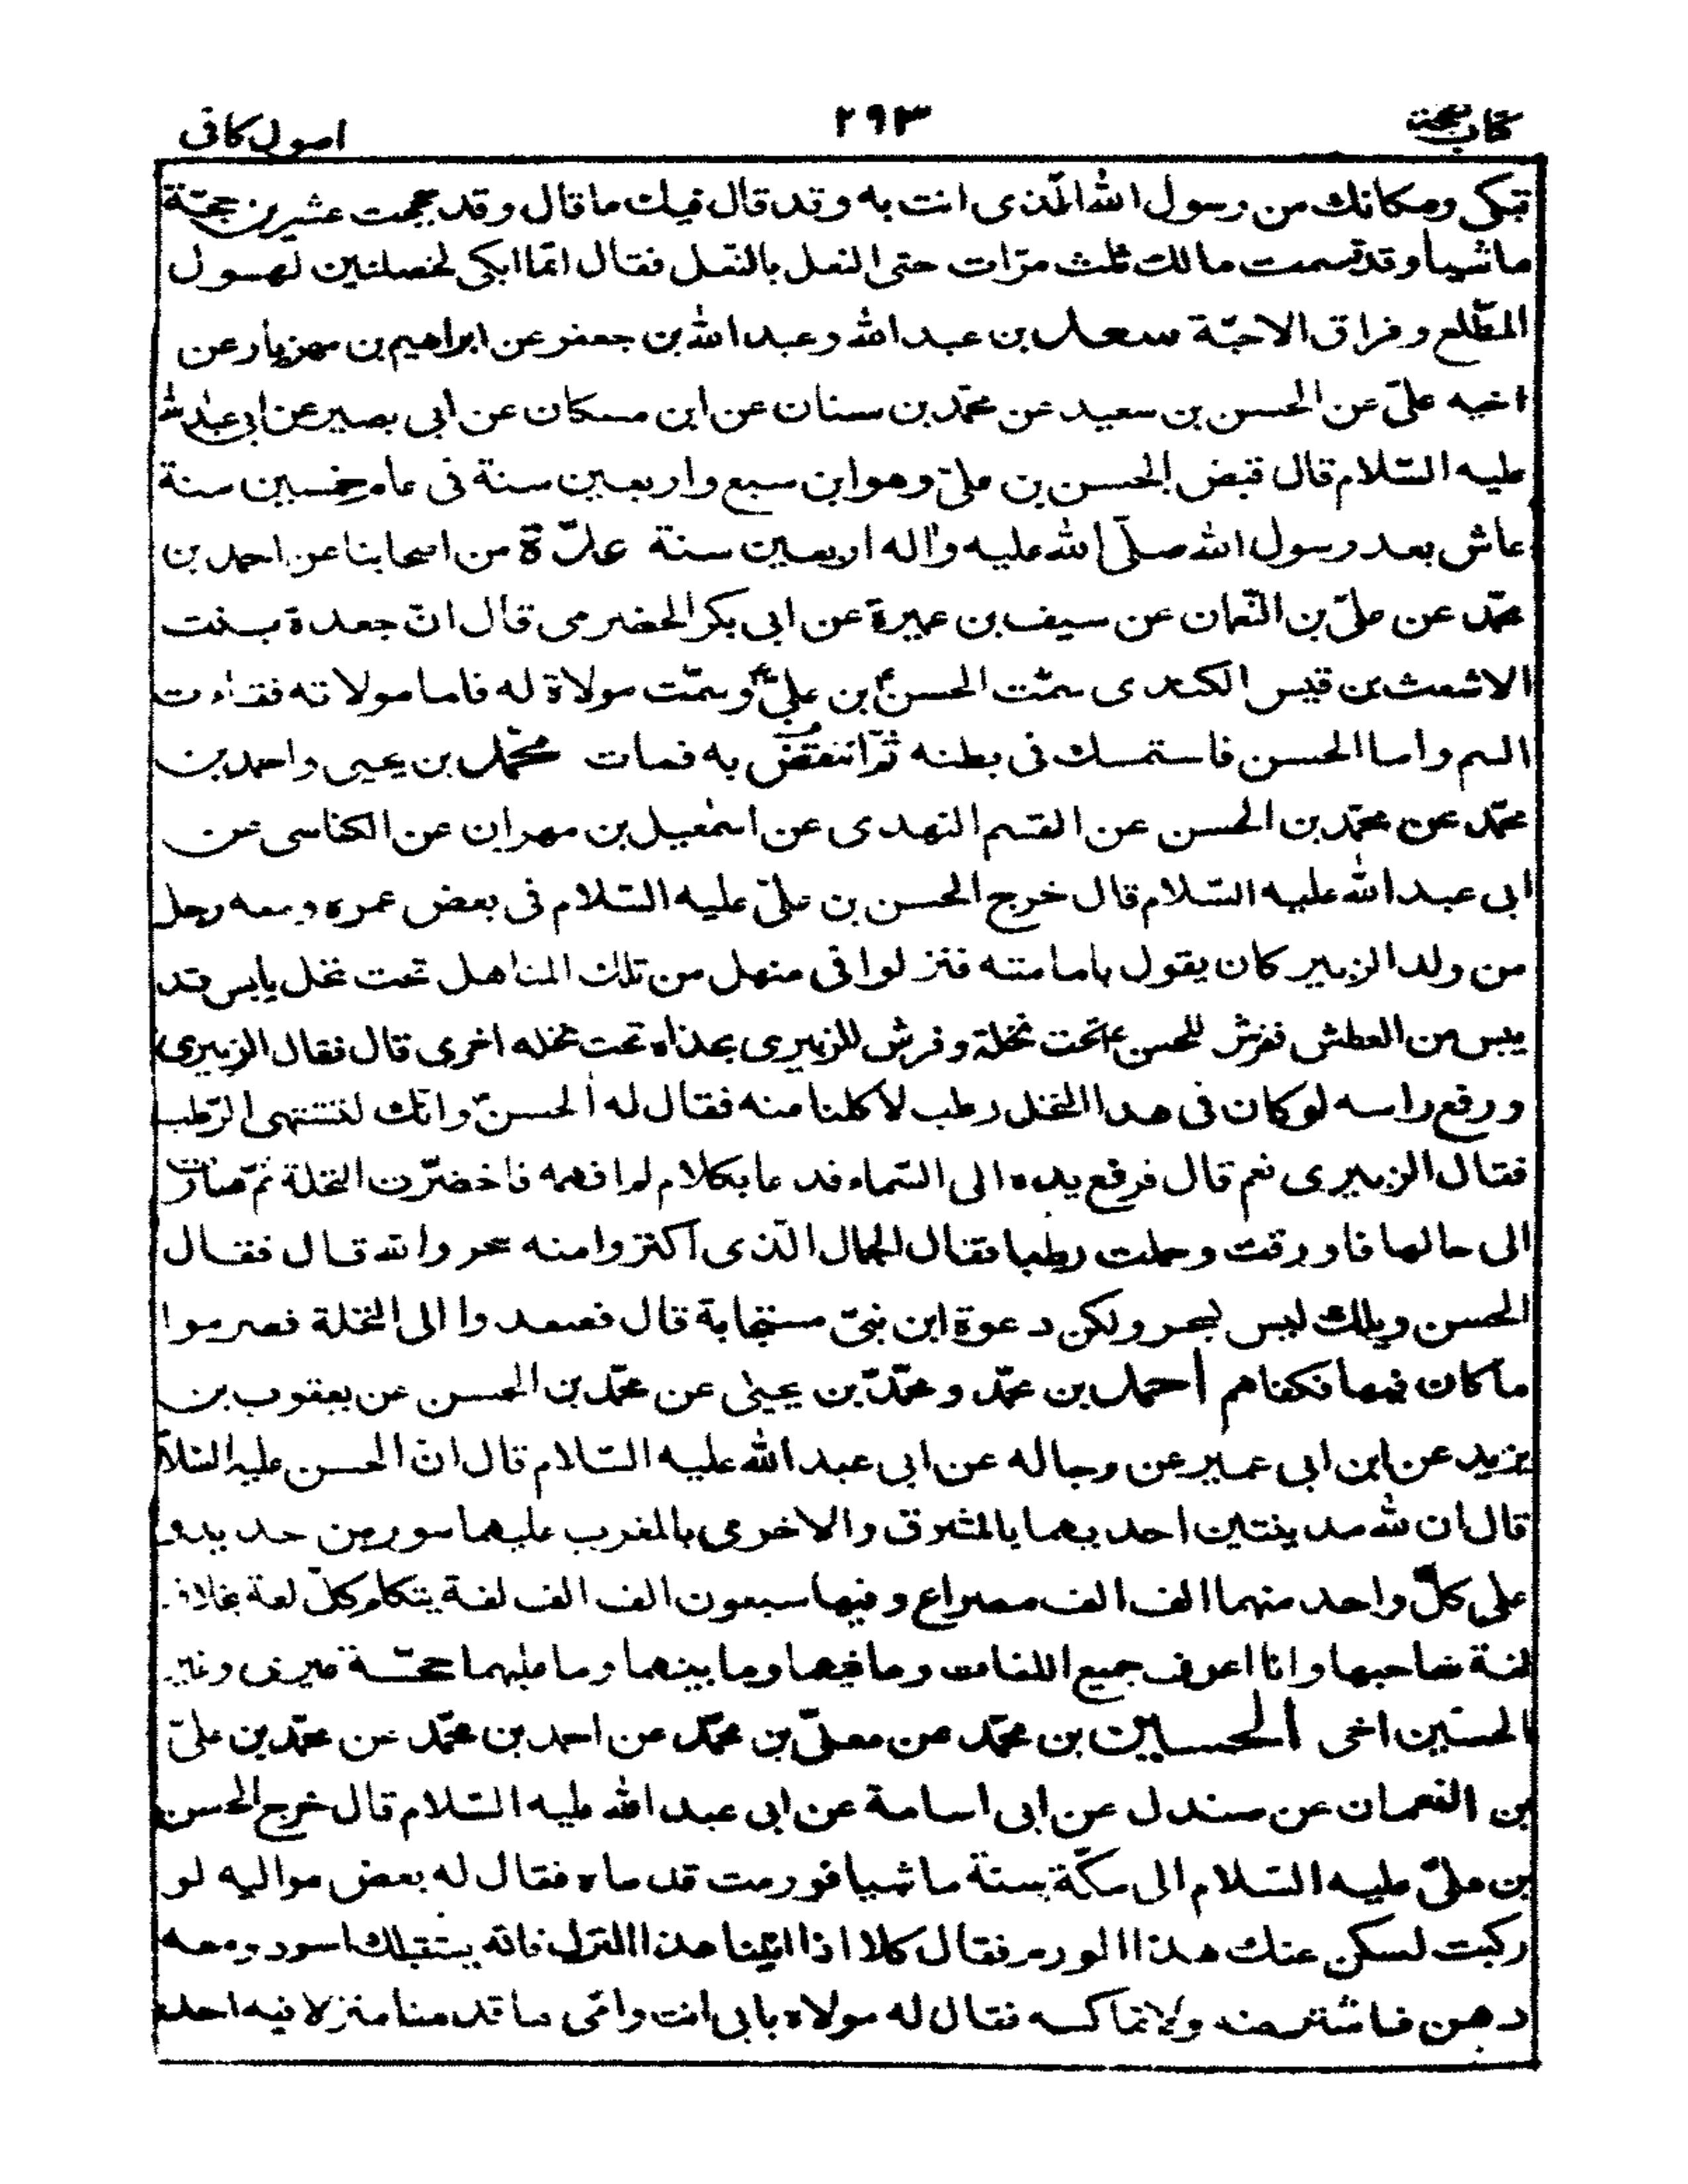 كتاب الحجة
٢٩٣
اصول كافى
تبكى ومكانك من رسول الله الّذى انت به وقد قال فيك ما قال وقد حججت عشرين حجّة
ماشيا وقد قسمت مالك ثلث مرّات حتى النعل بالنّعل فقال انّما ابكى لخصلتين لهول
المطّلع وفراق الاحبّة سعد بن عبد الله وعبد الله بن جعفر عن ابراهيم بن مهزيار عن
اخيه علىّ عن الحسن بن سعيد عن محمّد بن سنان عن ابن مسكان عن ابى بصير عن ابى عبد الله
عليه السّلام قال قبض الحسن بن علىّ وهو ابن سبع واربعين سنة فى عام خمسين سنة
عاش بعد رسول الله صلّى الله عليه واٰله اربعين سنة عدّة من اصحابنا عن احمد بن
محمّد عن علىّ بن النّعمان عن سيف بن عميرة عن ابى بكر الحضرمى قال انّ جعدة بنت
الاشعث بن قيس الكندى سمّت الحسنؑ بن علىّؑ وسمّت مولاة له فاما مولاته فقاءت
السم واما الحسن فاستمسك فى بطنه ثمّ انتفض به فمات محمّد بن يحيى واحمد بن
محمّد عن محمّد بن الحسن عن القسم النهدى عن اسمٰعيل بن مهران عن الكناسى عن
ابى عبد الله عليه السّلام قال خرج الحسن بن علىّ عليه السّلام فى بعض عمره ومعه رجل
من ولد الزبير كان يقول بامامته فنزلوا فى منهل من تلك المناهل تحت نخل يابس قد
يبس من العطش ففرش للحسنؑ تحت نخلة وفرش للزبيرى بحذاه تحت نخله اخرى قال فقال الزبيرى
ورفع راسه لو كان فى هذا النخل رطب لاكلنا منه فقال له الحسنؑ وانّك لتشتهى الرّطب
فقال الزبيرى نعم قال فرفع يده الى السّماء فدعا بكلام لم افهمه فاخضرّت النخلة ثمّ صارت
الى حالها فاورقت وحملت رطبا فقال الجمال الّذى اكتروا منه سحر والله قال فقال
الحسن ويلك ليس بسحر ولكن دعوة ابن نبىّ مستجابة قال فصعدوا الى النخلة فصرموا
ما كان فيها فكفاهم أحمد بن محمّد ومحمّد بن يحيىٰ عن محمّد بن الحسن عن يعقوب بن
يزيد عن ابن ابى عمير عن رجاله عن ابى عبد الله عليه السّلام قال انّ الحسن عليه السّلام
قال ان لله مدينتين احديهما بالمشرق والاخرى بالمغرب عليهما سور من حديد و
على كلّ واحد منهما الف الف مصراع وفيها سبعون الف الف لغة يتكلم كلّ لغة بخلاف
لغة صاحبها وانا اعرف جميع اللغات وما فيهما وما بينهما وما عليهما حجّة غيرى وغير
الحسين اخى الحسين بن محمّد عن معلّى بن محمّد عن احمد بن محمّد عن محمّد بن علىّ
بن النعمان عن صندل عن ابى اسامة عن ابى عبد الله عليه السّلام قال خرج الحسن
بن علىّ عليه السّلام الى مكّة سنة ماشيا فورمت قدماه فقال له بعض مواليه لو
ركبت لسكن عنك هذا الورم فقال كلا اذا اتينا هذا المنزل فانّه يستقبلك اسود ومعه
دهن فاشتر منه ولا تماكسه فقال له مولاه بابى انت وامّى ما قدمنا منزلا فيه احد